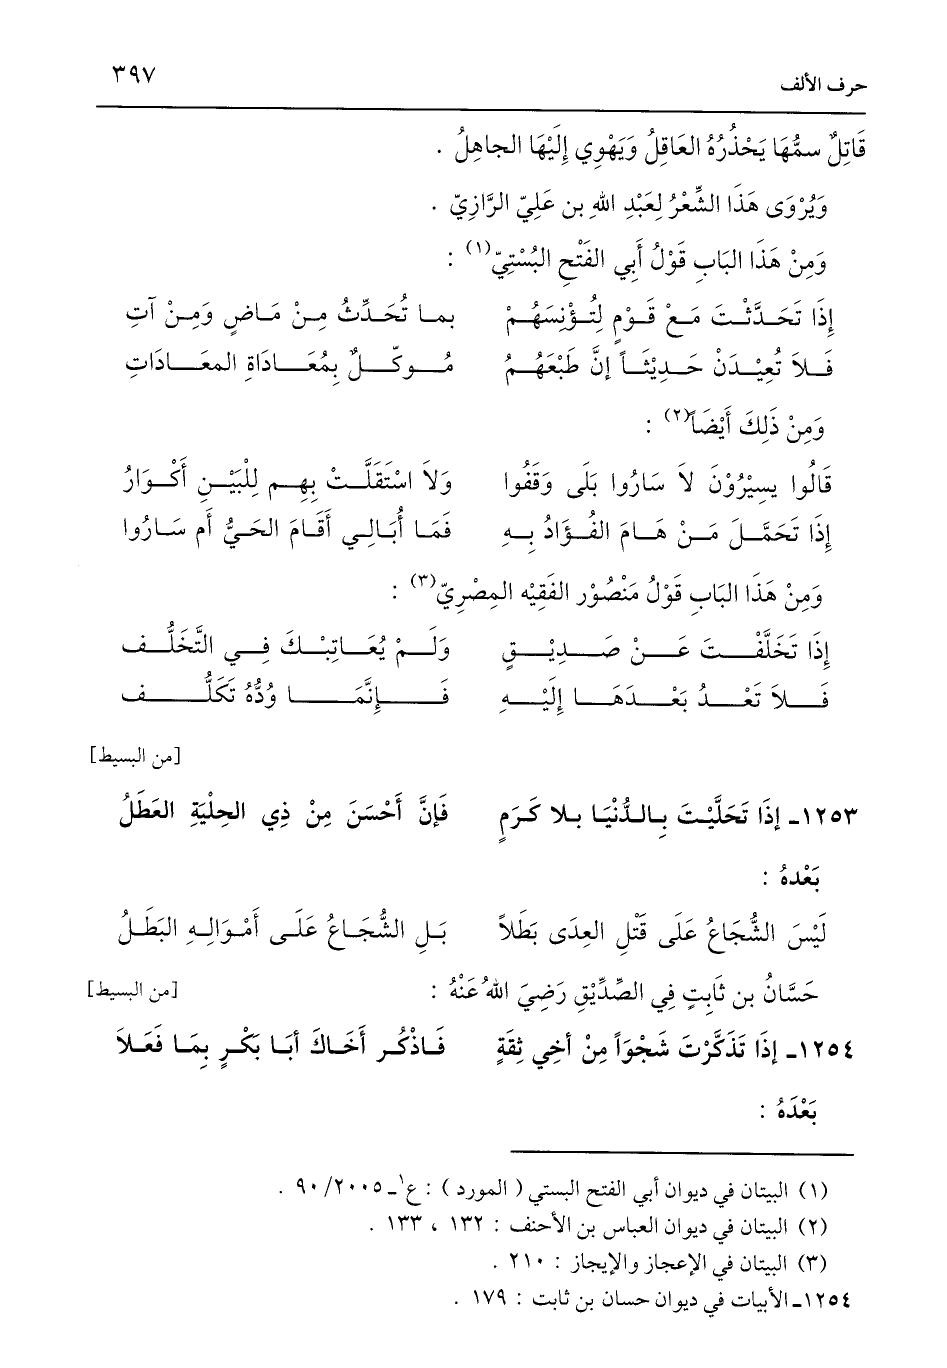 حرف الألف ٣٩٧
قَاتِلٌ سمُّهَا يَحْذُرُهُ العَاقِلُ وَيَهْوِي إِلَيْهَا الجاهِلُ .
وَيُرْوَى هَذَا الشِّعْرُ لِعَبْدِ اللهِ بن عَلِيّ الرَّازِيّ .
وَمِنْ هَذَا البَابِ قَوْلُ أَبِي الفَتْحِ البُسْتِيّ(١) :
إِذَا تَحَدَّثْتَ مَعْ قَوْمٍ لِتُؤْنِسَهُمْ بما تُحَدِّثُ مِنْ مَاضٍ وَمِنْ آتِ
فَلاَ تُعِيْدَنْ حَدِيْثَاً إنَّ طَبْعَهُمُ مُوكّلٌ بِمُعَادَاةِ المعَادَاتِ
وَمِنْ ذَلِكَ أَيْضَاً(٢) :
قَالُوا يسِيْرُوْنَ لاَ سَارُوا بَلَى وَقَفُوا وَلاَ اسْتَقَلَّتْ بِهِم لِلْبَيْنِ أَكْوَارُ
إِذَا تَحَمَّلَ مَنْ هَامَ الفُؤَادُ بِهِ فَمَا أُبَالِي أَقَامَ الحَيُّ أم سَارُوا
وَمِنْ هَذَا البَابِ قَوْلُ مَنْصُوْر الفَقِيْه المِصْرِيّ(٣) :
إِذَا تَخَلَّفْتَ عَنْ صَدِيْقٍ وَلَمْ يُعَاتِبْكَ فِي التَّخَلُّف
فَلاَ تَعْدُ بَعْدَهَا إِلَيْهِ فَإِنَّمَا وُدُّهُ تَكَلُّف
[من البسيط]
١٢٥٣ـ إِذَا تَحَلَّيْتَ بِالدُّنْيَا بِلا كَرَمٍ فَإنَّ أَحْسَنَ مِنْ ذِي الحِلْيَةِ العَطَلُ
بَعْدهُ :
لَيْسَ الشُّجَاعُ عَلَى قَتْلِ العِدَى بَطَلاً بَلِ الشُّجَاعُ عَلَى أَمْوَالِهِ البَطَلُ
حَسَّانُ بن ثَابِتٍ فِي الصِّدِّيْقِ رَضِيَ اللهُ عَنْهُ : [من البسيط]
١٢٥٤ـ إِذَا تَذَكَّرْتَ شَجْوَاً مِنْ أخِي ثِقَةٍ فَاذْكُر أَخَاكَ أبَا بَكْرٍ بِمَا فَعَلاَ
بَعْدَهُ :
(١) البيتان في ديوان أبي الفتح البستي ( المورد ) : ع١ـ ٢٠٠٥/ ٩٠ .
(٢) البيتان في ديوان العباس بن الأحنف : ١٣٢ ، ١٣٣ .
(٣) البيتان في الإعجاز والإيجاز : ٢١٠ .
١٢٥٤ـ الأبيات في ديوان حسان بن ثابت : ١٧٩ .